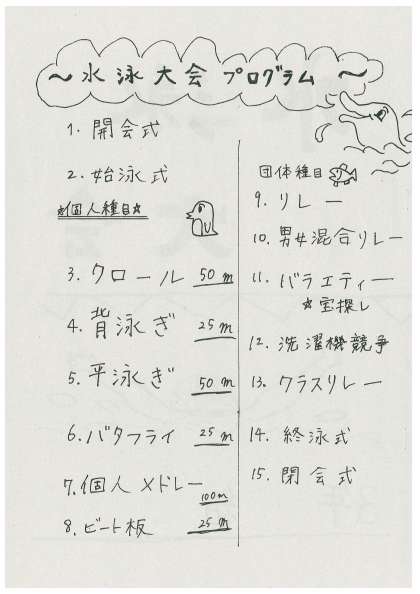 ～水泳大会プログラム～
1. 開会式
2. 始泳式
☆個人種目☆
3. クロール 50m
4. 背泳ぎ 25m
5. 平泳ぎ 50m
6. バタフライ 25m
7. 個人メドレー 100m
8. ビート板 25m
団体種目
9. リレー
10. 男女混合リレー
11. バラエティー
☆宝探し
12. 洗濯機競争
13. クラスリレー
14. 終泳式
15. 閉会式